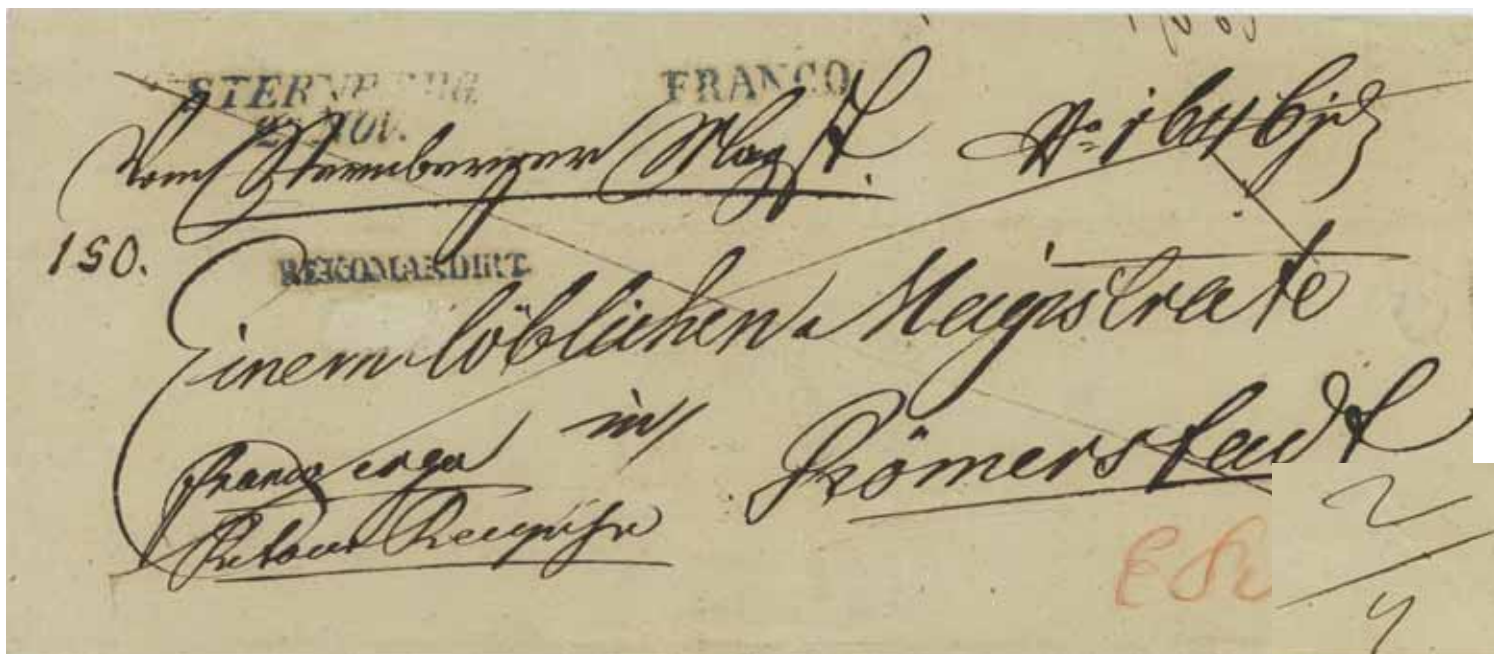 STERNBERG FRANCO
NOV.
Vom Sternberger Mag
150.
REKOMANDIRT
Einem löblichen Magistrate
in
Römerstadt
Franco erga
Retour Recepisse
2
4